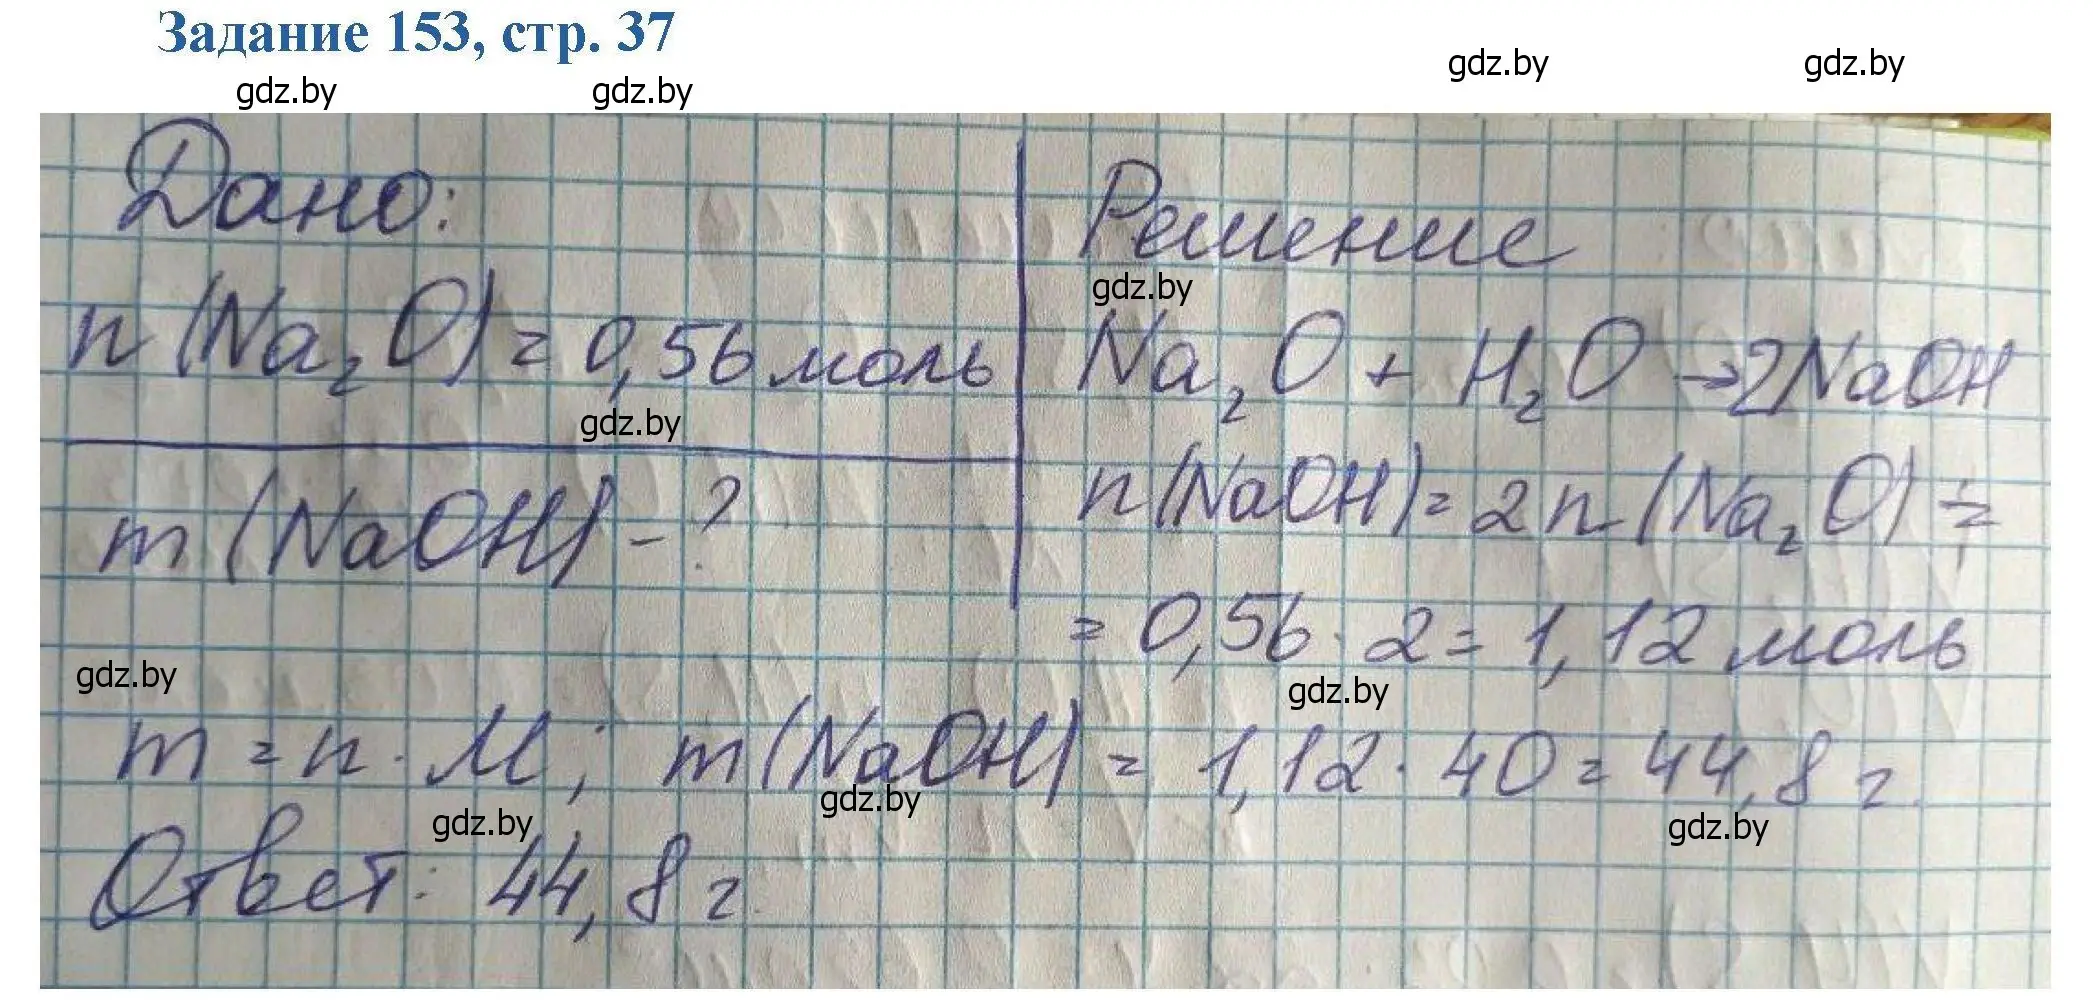 Задание 153, стр. 37
gdz.by gdz.by gdz.by gdz.by
Дано:
n(Na₂O) = 0,56 моль
gdz.by
m(NaOH) - ?
Решение
gdz.by
Na₂O + H₂O → 2NaOH
n(NaOH) = 2n(Na₂O) =
= 0,56 · 2 = 1,12 моль
gdz.by gdz.by
m = n · M; m(NaOH) = 1,12 · 40 = 44,8 г.
gdz.by gdz.by gdz.by
Ответ: 44,8 г.